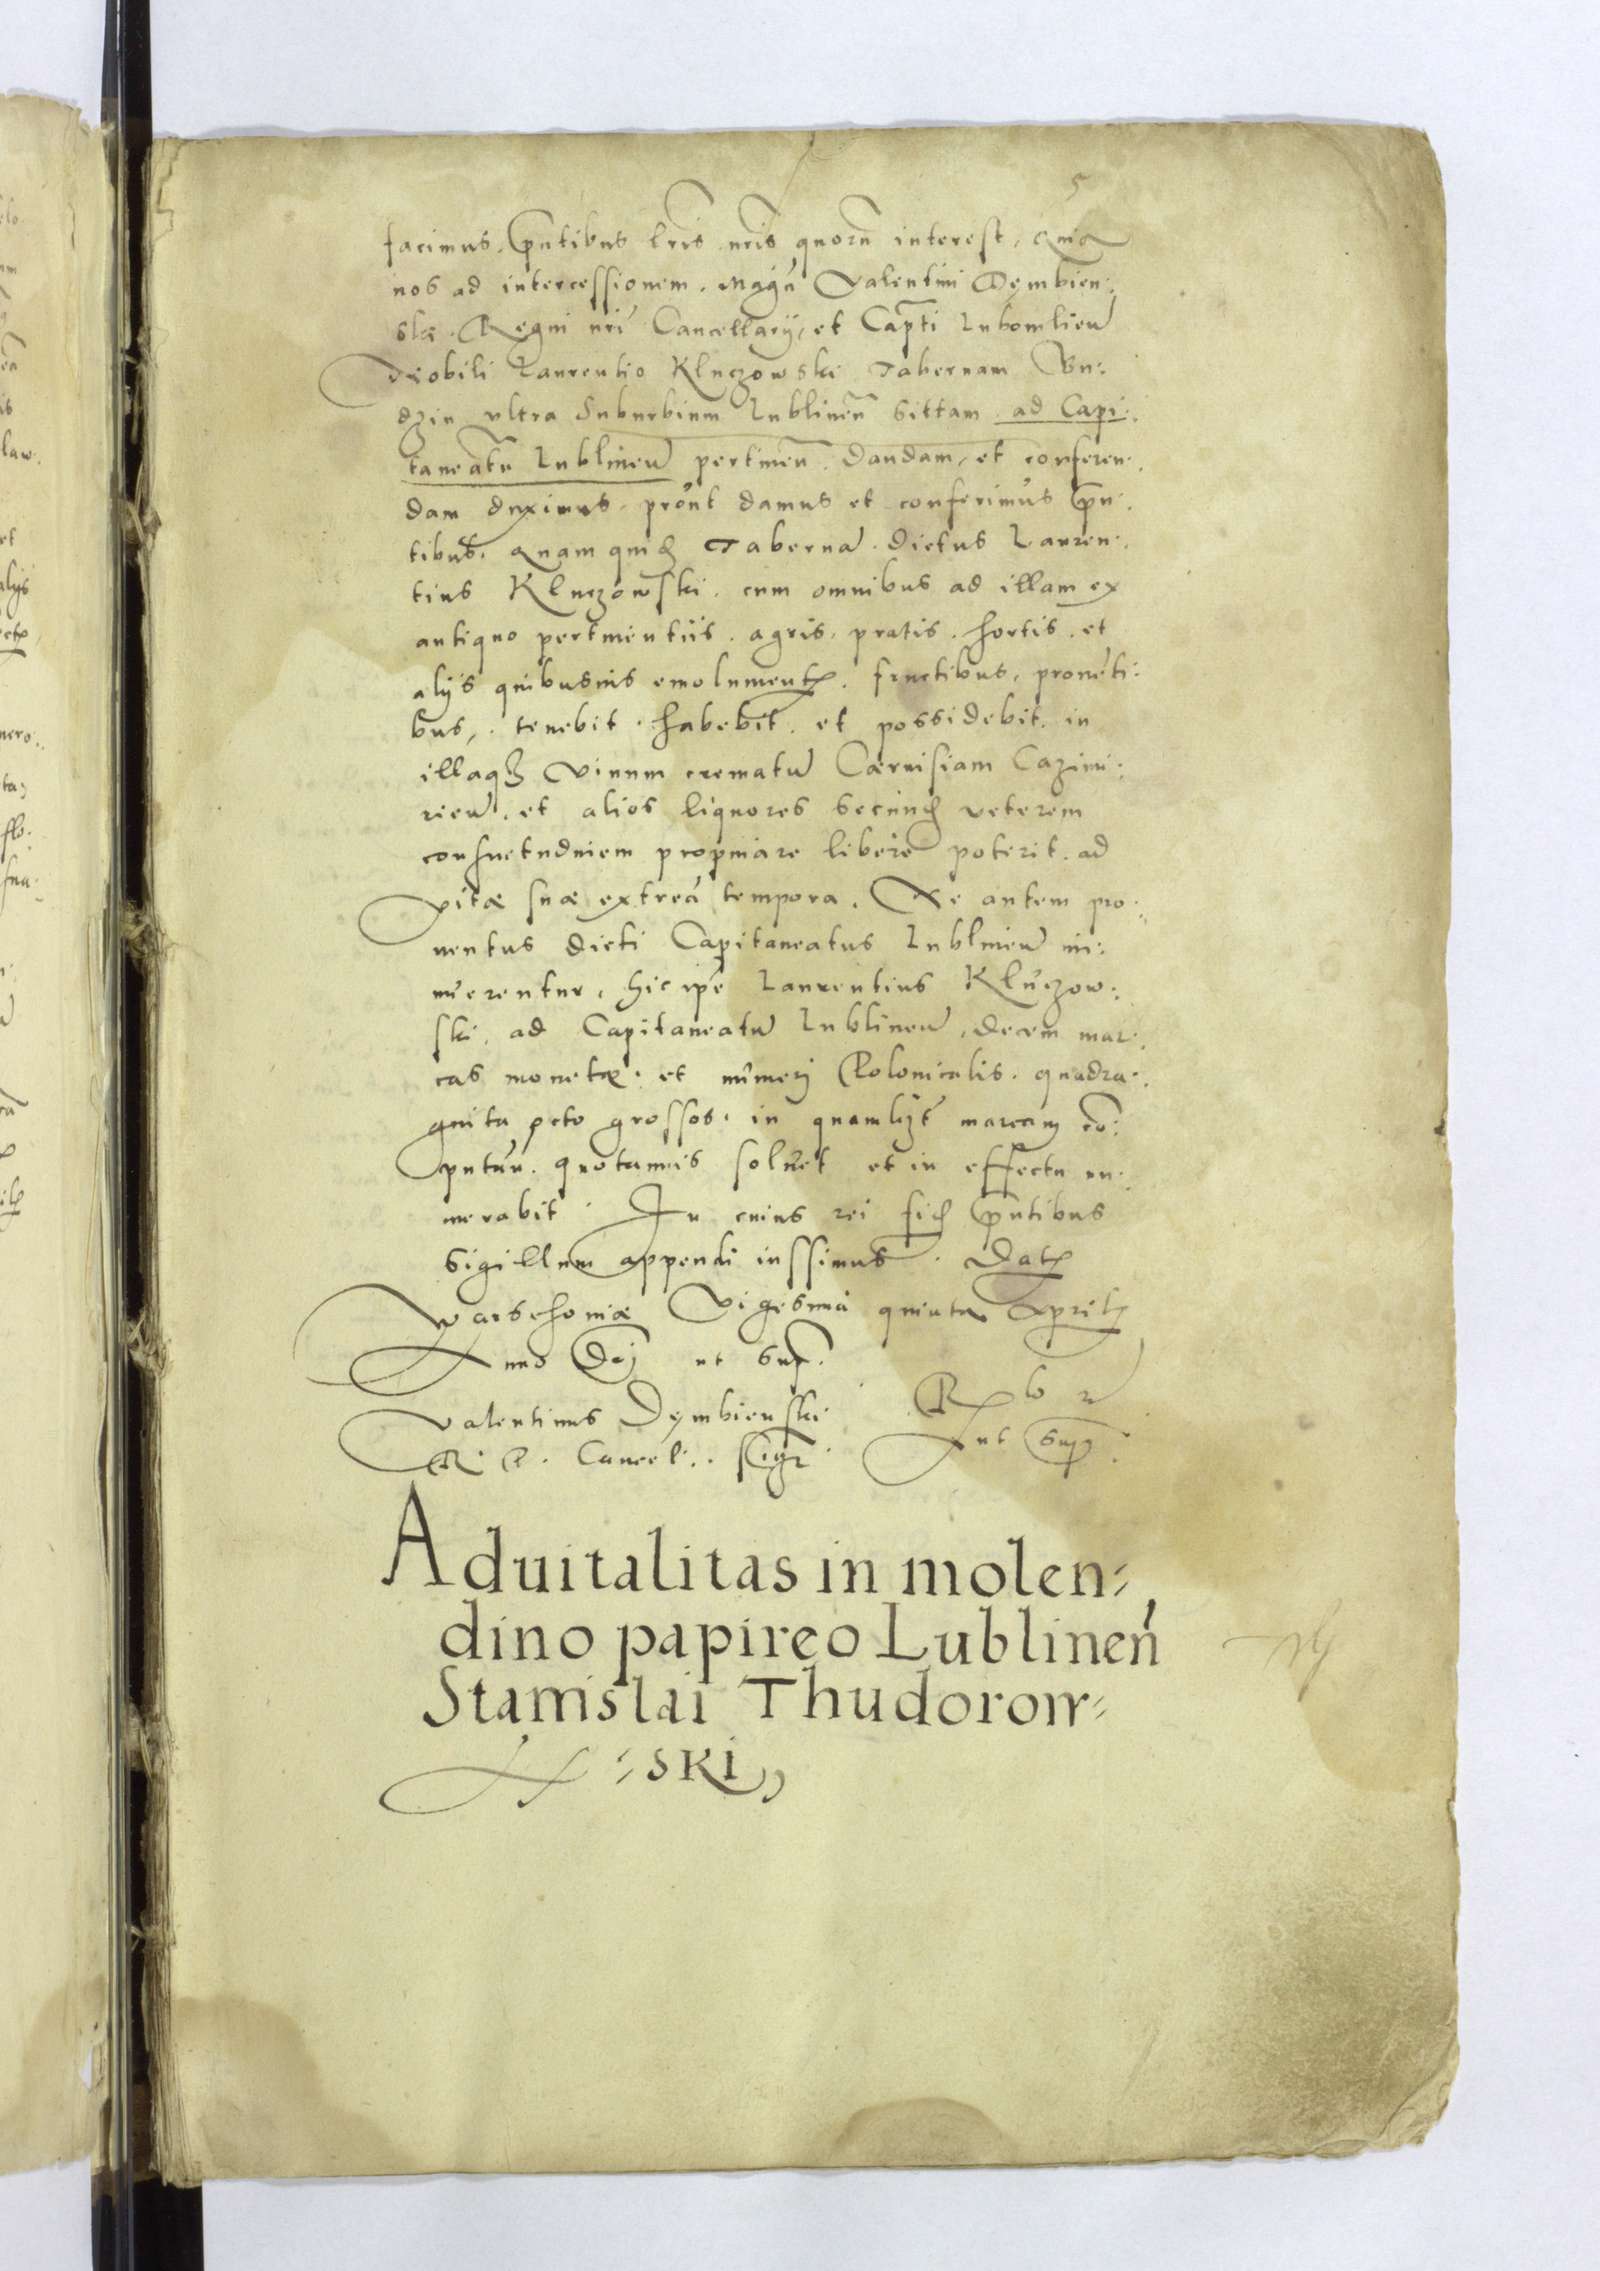 5
facimus. Pñtibus lrīs nrīs quorū interest, Quia
nos ad intercessionem. Magci Valentini Dembien:
ski. Regni nrī Cancellarij, et Capti Lubomlieñ
Nobili Laurentio Kluczowski Tabernam Bu:
dzin ultra Suburbium Lublineñ sittam ad Capi:
taneatū Lublineñ pertineñ. dandam, et conferen:
dam duximus, prout damus et conferimus Pñ:
tibus. Quam quid Tabernā dictus Lauren:
tius Kluczowski. cum omnibus ad illam ex
antiquo pertinentiis. agris. pratis. hortis. et
alijs quibusuis emolumentꝭ. fructibus, prouēti:
bus, tenebit. habebit. et possidebit. in
illaqꝫ vinum crematū Cæruisiam Cazimi:
rieñ. et alios liquores secund veterem
consuetudinem propinare libere poterit. ad
vitæ suæ extrea tempora. Ne autem pro:
uentus dicti Capitaneatus Lublineñ mi:
nuerentur, hic ipe Laurentius Kluczow:
ski. ad Capitaneatū Lublineñ, decem mar:
cas monetæ. et numeri Polonicalis. quadra:
ginta octo grossos. in quamlizt marcam cō:
putan. quotannis soluet et in effectu nu:
merabit. In cuius rei fid Pñtibus
sigillum appendi iussimus. Datꝭ
Warschouiæ Vigesima quinta Aprilꝭ
Anno Dnj ut sup.
Valentinus Dembienski
R. P. Cancel: ssgr
Rlo r
ut sup.
Aduitalitas in molen=
dino papireo Lublineń
Stanislai Thudorow=
=ski,